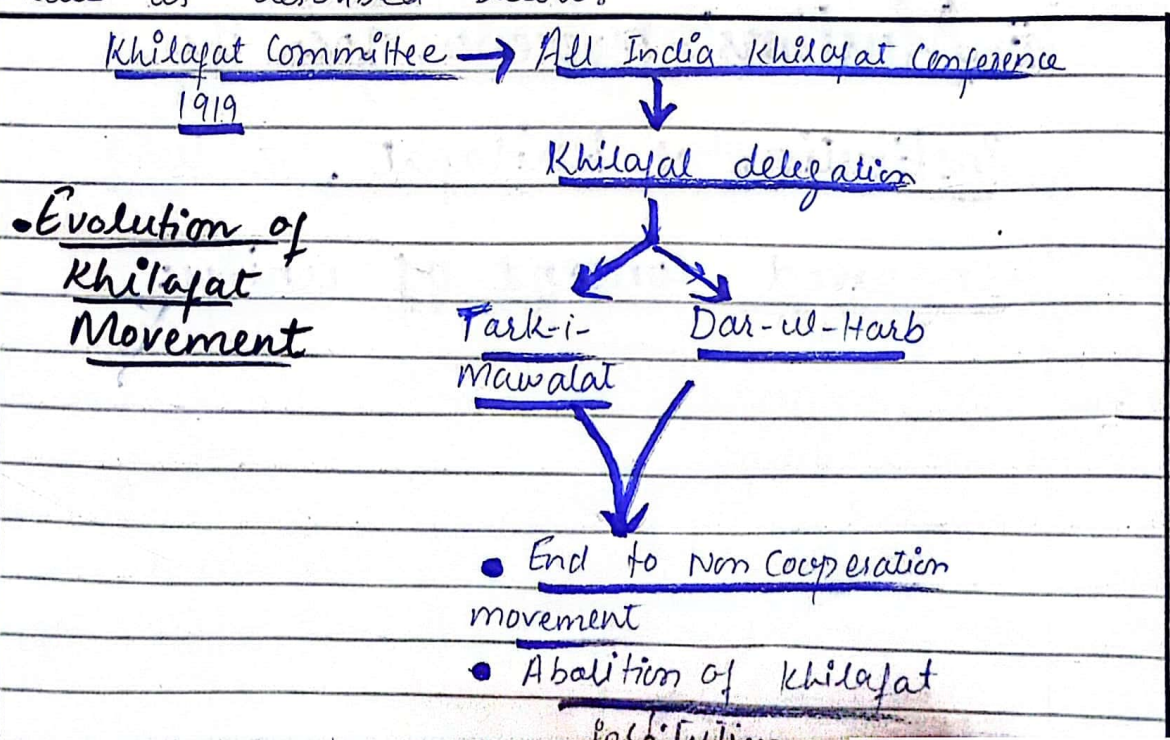 Khilafat Committee → All India Khilafat Conference
1919
Khilafat delegation
• Evolution of
Khilafat
Movement
Tark-i-
Mawalat
Dar-ul-Harb
• End to Non Cooperation
movement
• Abolition of Khilafat